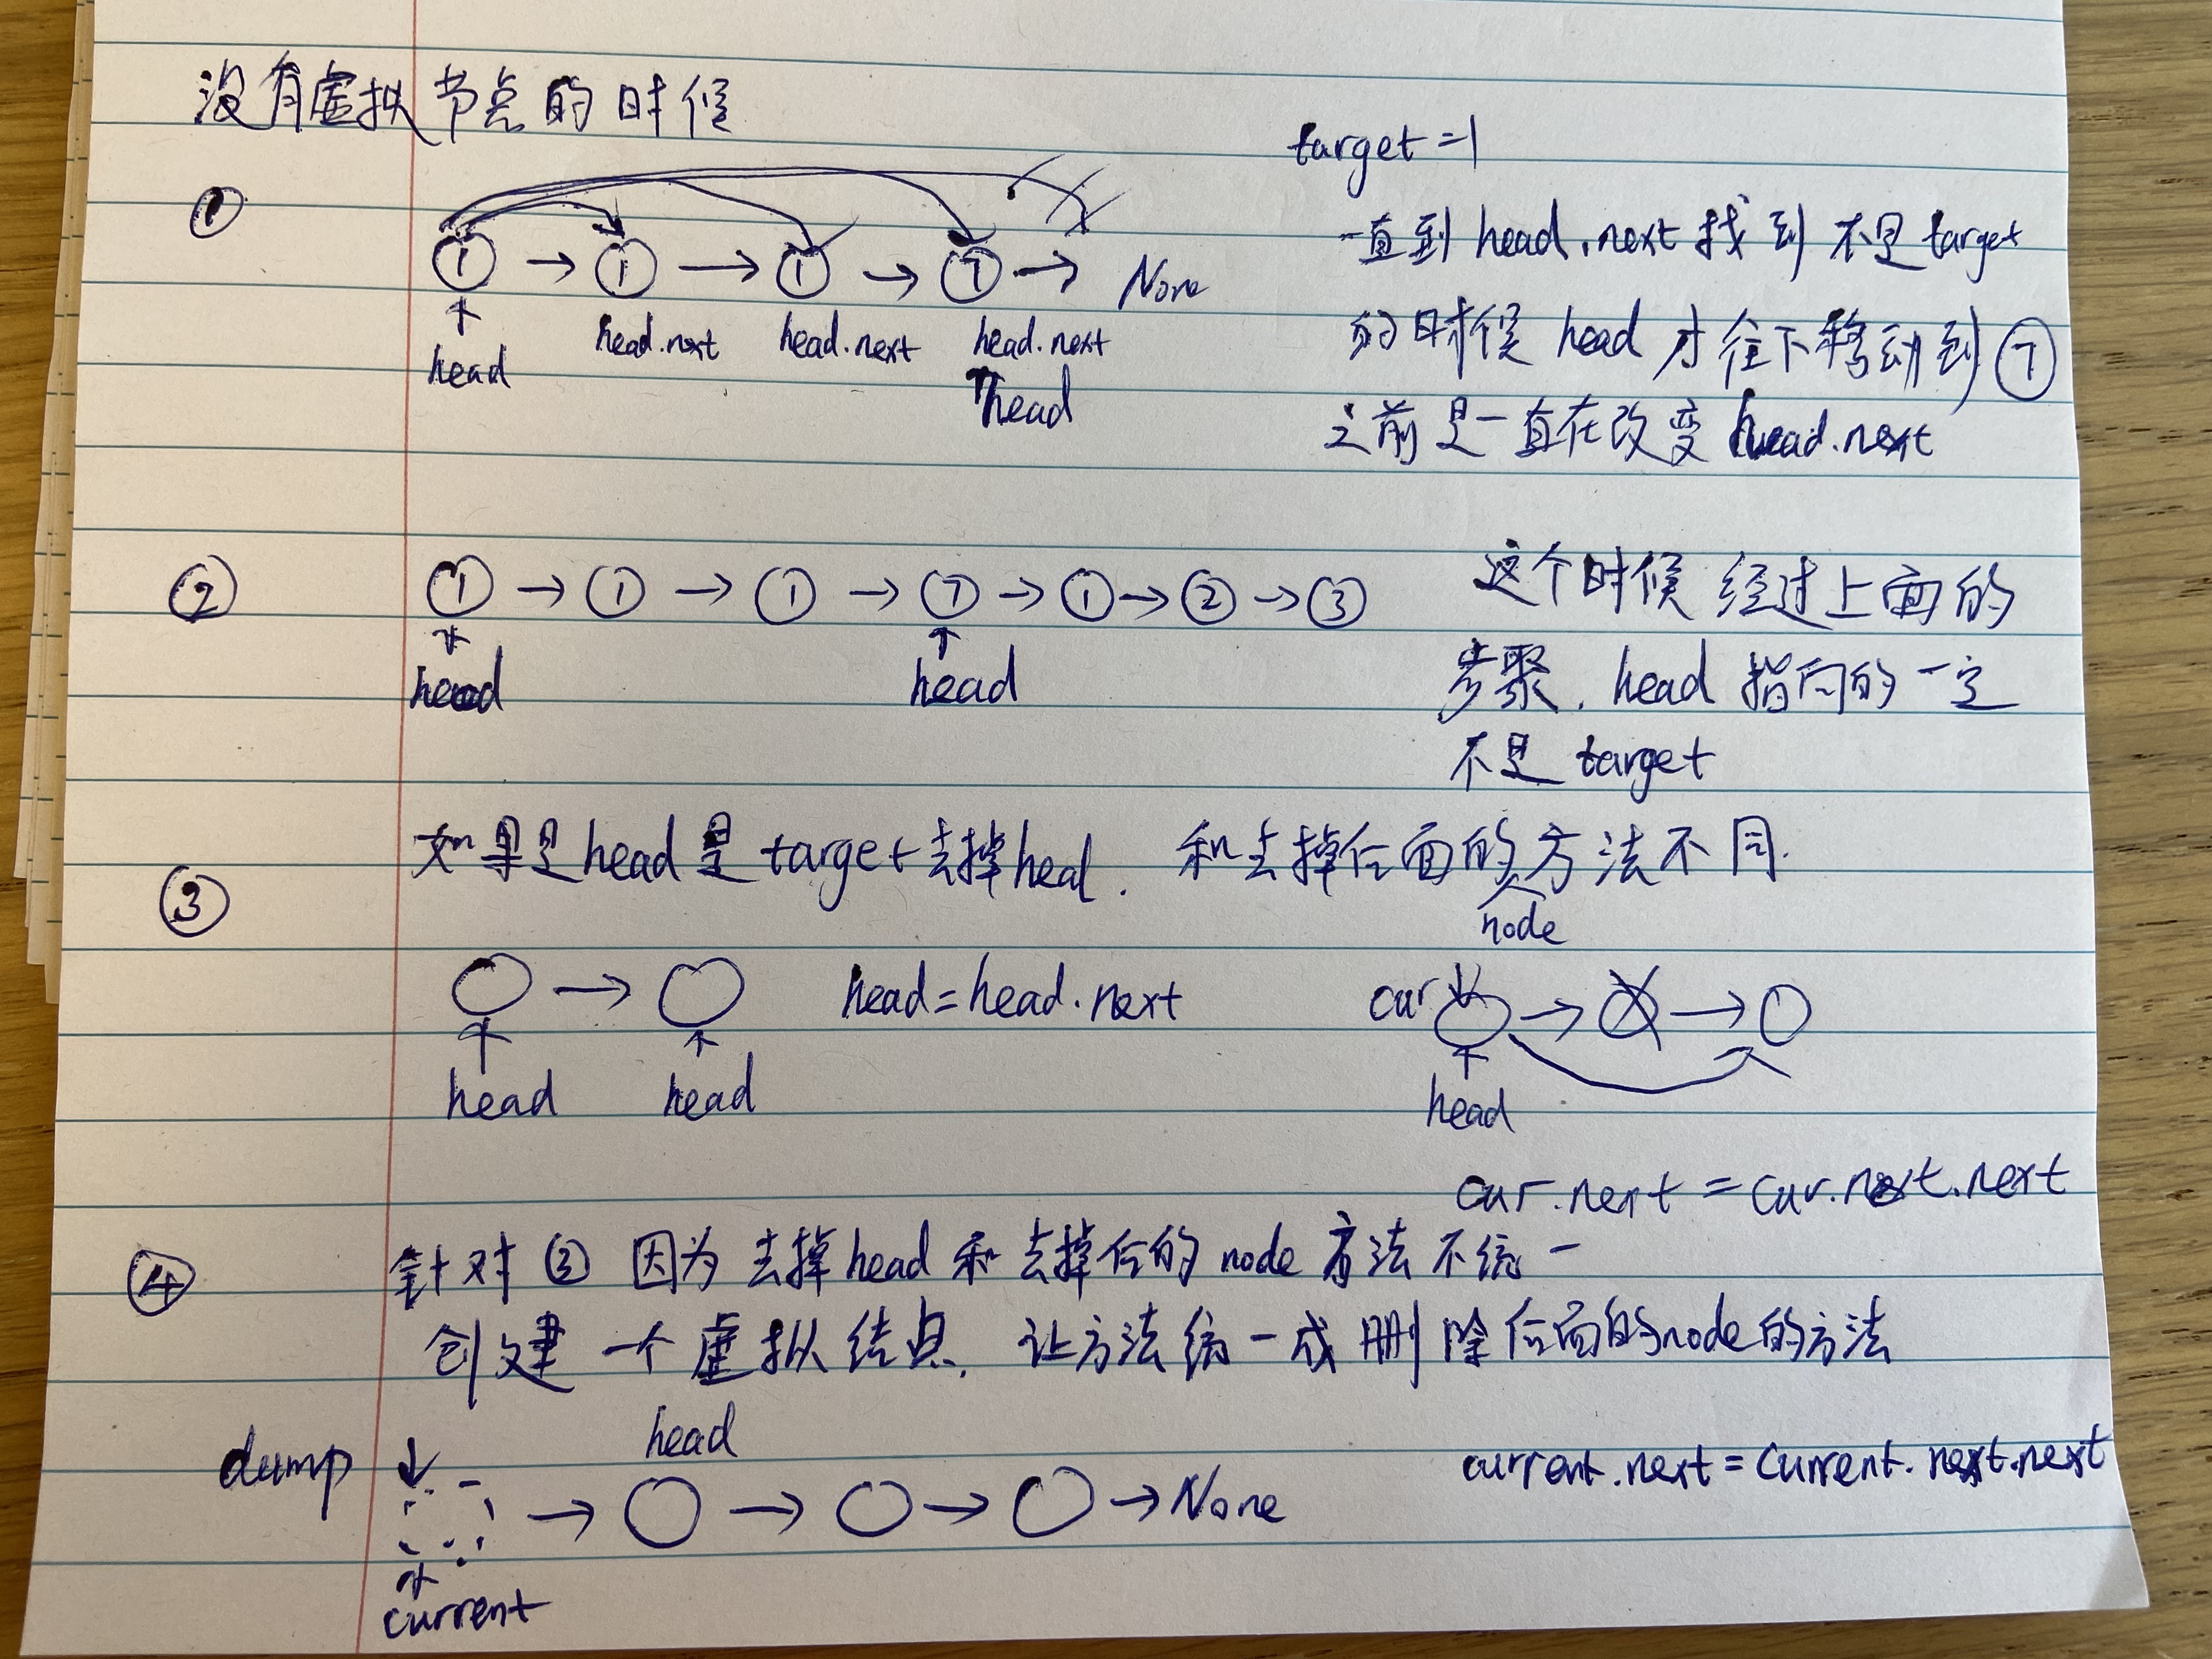 没有虚拟节点的时候
target=1
①
① → ① → ① → ⑦ → None
head
head.next
head.next
head.next
head
一直到 head.next 找到 不是 target
的时候 head 才往下移动到 ⑦
之前是一直在改变 head.next
②
① → ① → ① → ⑦ → ① → ② → ③
head
head
这个时候 经过上面的
步聚. head 指向的一定
不是 target
③
如果是 head 是 target 去掉 head. 和去掉后面的 node 方法不同.
head
head
head=head.next
cur
head
cur.next = cur.next.next
④
针对 ③ 因为 去掉 head 和 去掉后的 node 方法 不统一
创建 一个 虚拟 结点, 让方法统一成 删除后面的node的方法
dump
head
→ → → → None
current
current.next = current.next.next